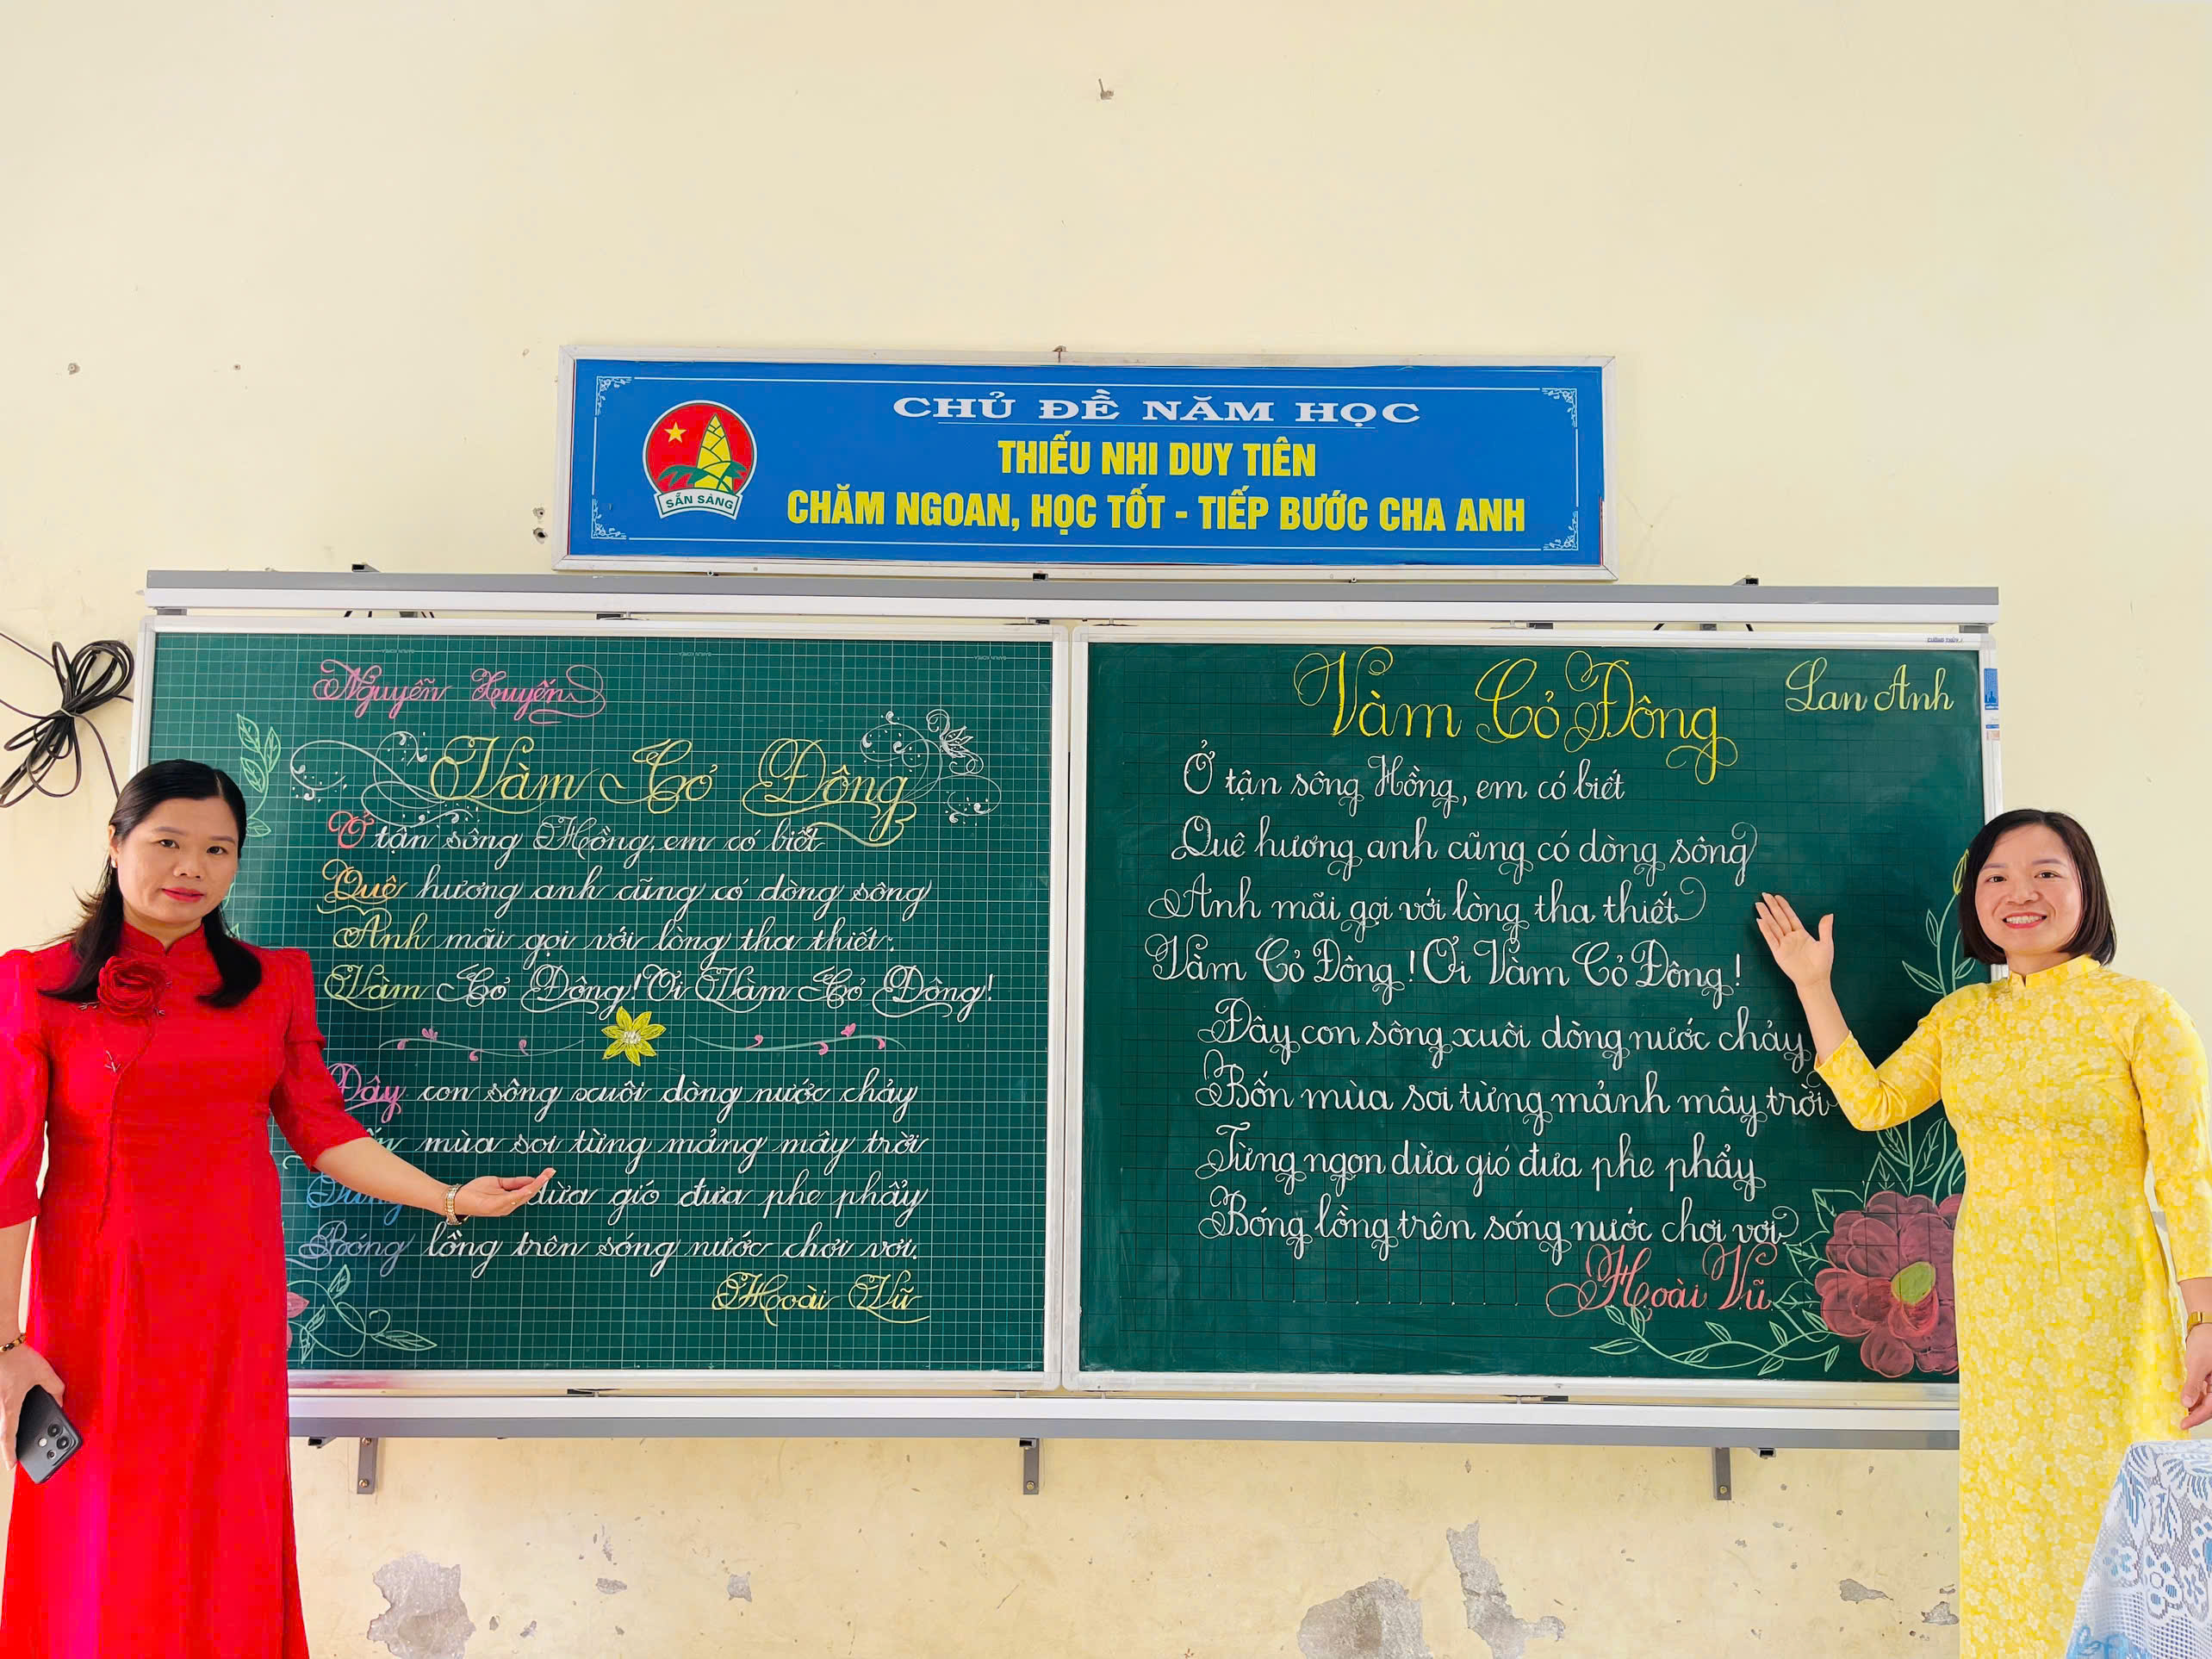 CHỦ ĐỀ NĂM HỌC
THIẾU NHI DUY TIÊN
CHĂM NGOAN, HỌC TỐT - TIẾP BƯỚC CHA ANH
SẴN SÀNG
Nguyễn Xuyến
Vàm Cỏ Đông
Ở tận sông Hồng, em có biết
Quê hương anh cũng có dòng sông
Anh mãi gọi với lòng tha thiết:
Vàm Cỏ Đông! Ơi Vàm Cỏ Đông!
Đây con sông xuôi dòng nước chảy
mùa soi từng mảng mây trời
Từng dừa gió đưa phe phẩy
Bóng lồng trên sóng nước chơi vơi.
Hoài Vũ
Lan Anh
Vàm Cỏ Đông
Ở tận sông Hồng, em có biết
Quê hương anh cũng có dòng sông
Anh mãi gọi với lòng tha thiết
Vàm Cỏ Đông! Ơi Vàm Cỏ Đông!
Đây con sông xuôi dòng nước chảy
Bốn mùa soi từng mảnh mây trời
Từng ngọn dừa gió đưa phe phẩy
Bóng lồng trên sóng nước chơi vơi
Hoài Vũ